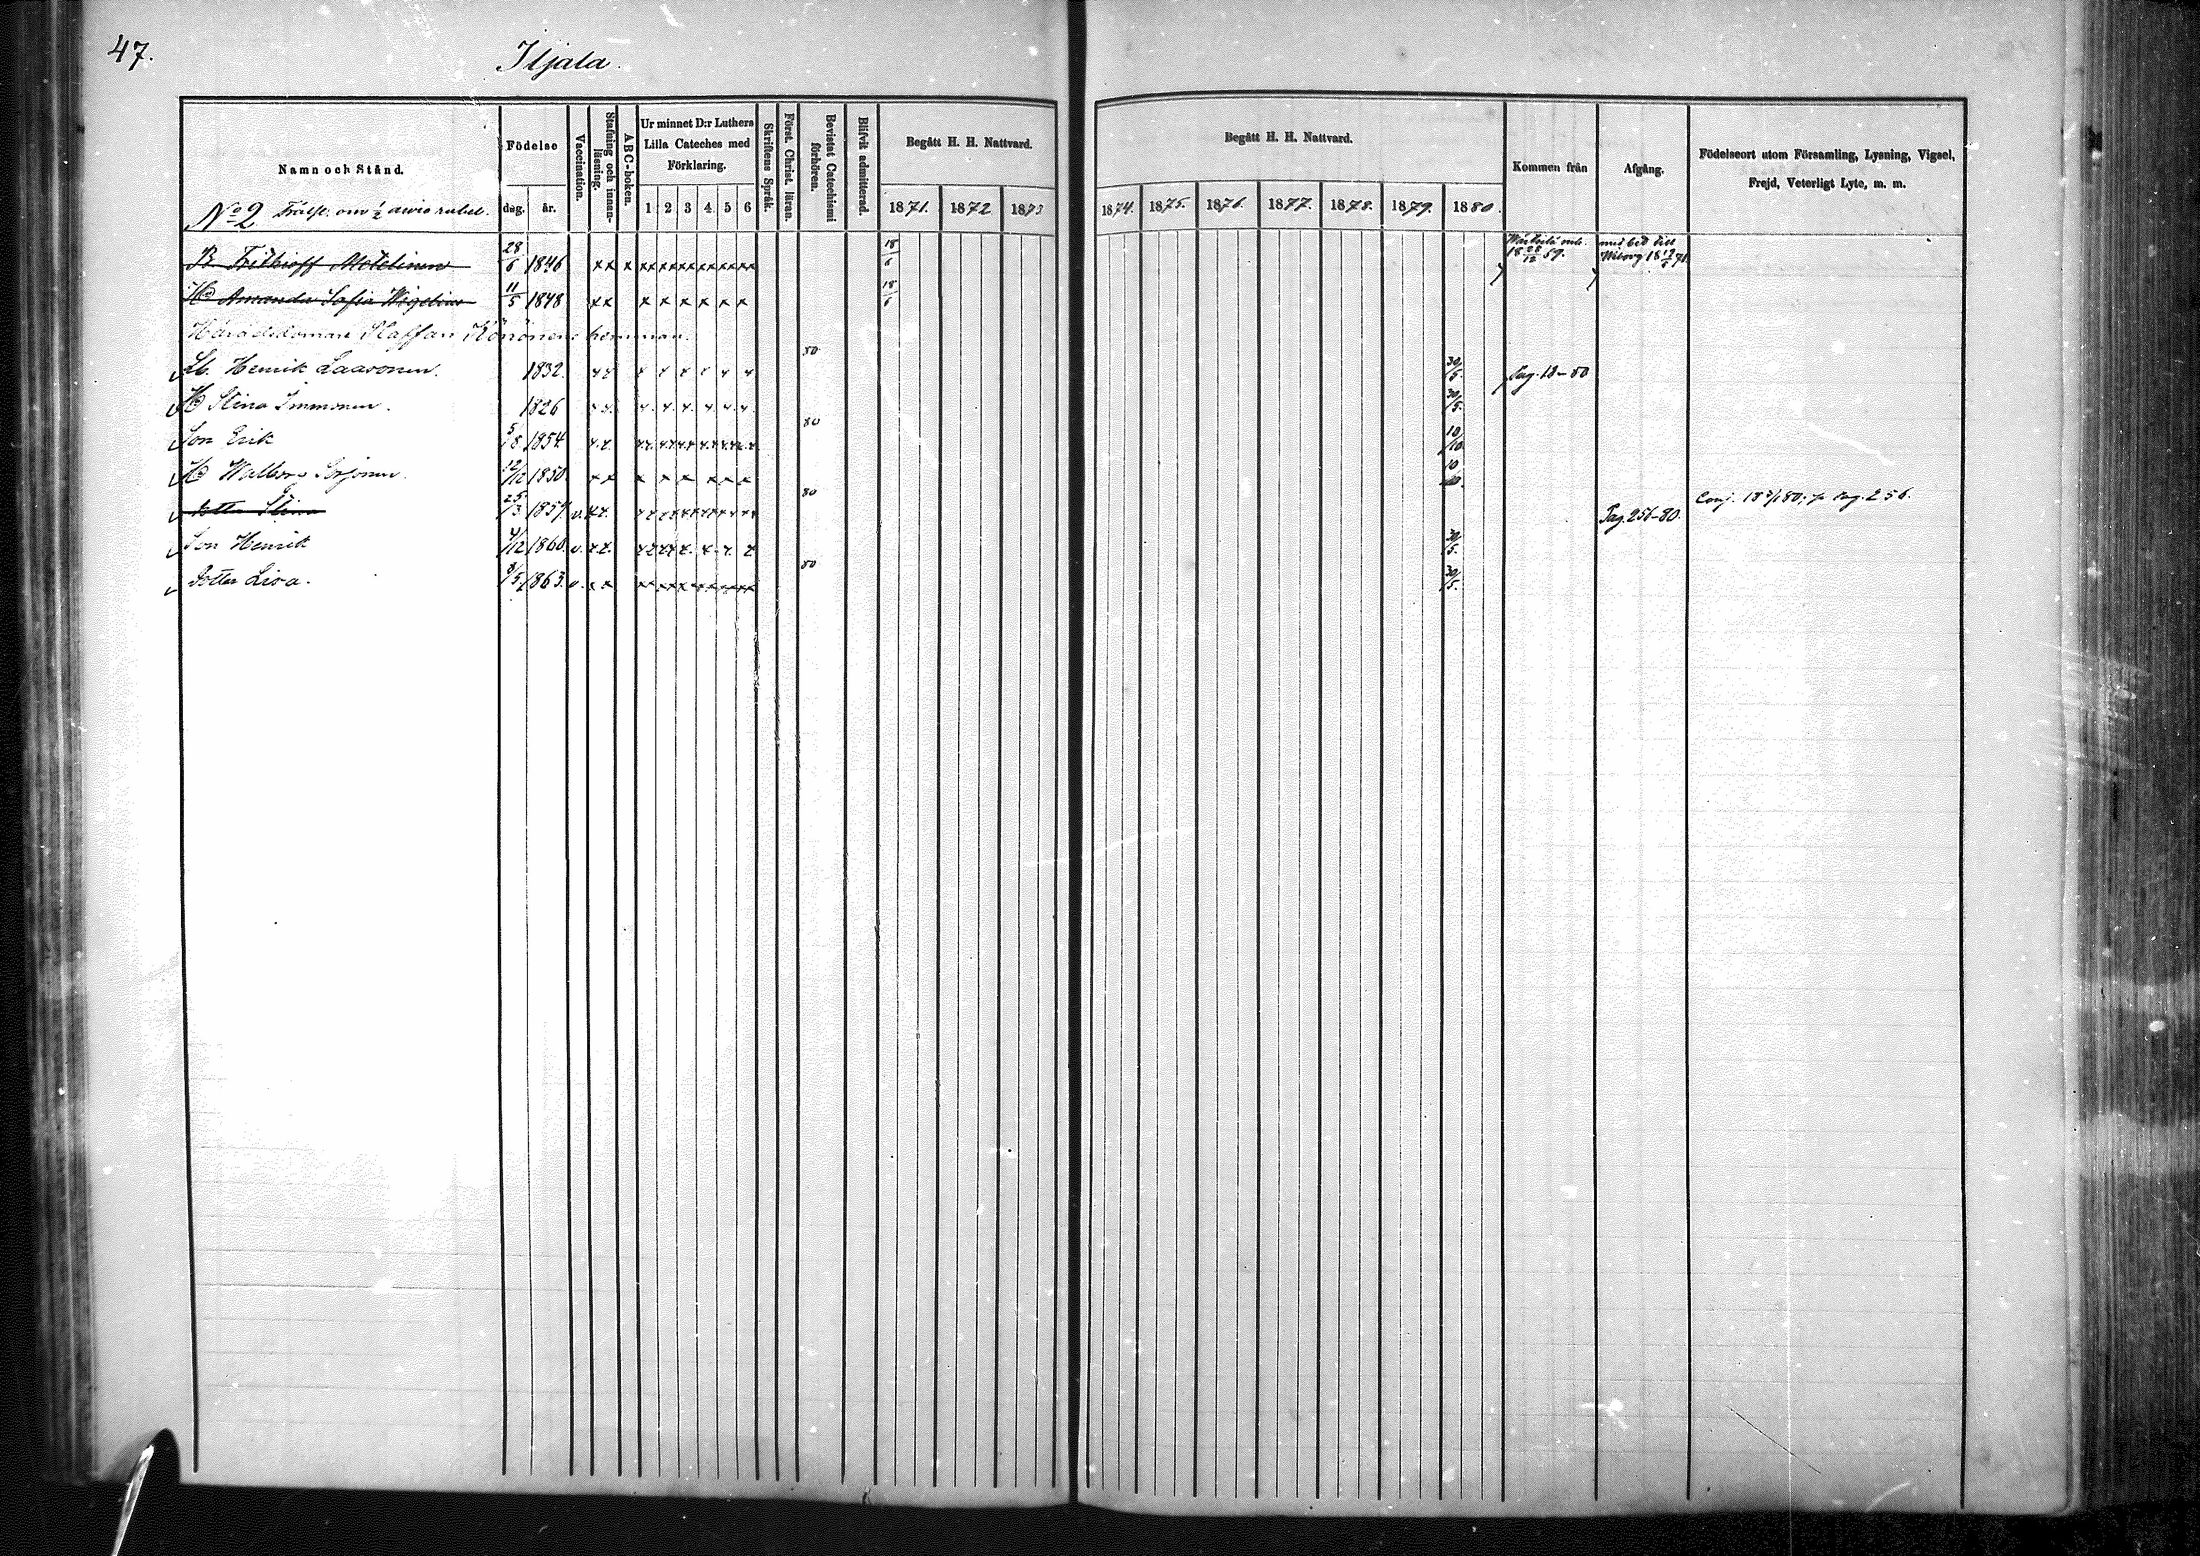 47.
Iljala.
Namn och Stånd.
Födelse
dag. år.
Vaccination.
Stafning och innan-läsning.
ABC-boken.
Ur minnet D:r Luthers Lilla Cateches med Förklaring.
1 2 3 4 5 6
Skriftens Språk.
Först. Christ. läran.
Bevistat Catechismi förhören.
Blifvit admitterad.
Begått H. H. Nattvard.
1871. 1872 1873
Begått H. H. Nattvard.
1874. 1875. 1876. 1877. 1878. 1879. 1880.
Kommen från
Afgång.
Födelseort utom Församling, Lysning, Vigsel, Frejd, Veterligt Lyte, m. m.
No 2 Frälse om 1/2 rubel.
B. Frithioff 28/6 1846 x x x x x x x x x x x x x x 18/6 18 28/12 69. med bet. till Wiborg
H Amanda Sofia 11/5 1848 x x x x x x x x 18/6
Häradsdomare Staffan Könönens hemman.
Henrik Laasonen. 1832. x x x x x x x x 80 30/5. Pag. 18-80
H Stina Immonen. 1826 x x x x x x x x 30/5.
Son Erik 5/8 1854 80 10/10.
H Walborg Sorjonen. 12/12 1850. x x x x x x x x 10/10.
Dotter Stina 25/3 1857. v. 80 Pag. 256-80. Conj. pag. 256.
Son Henrik 4/12 1860. v. 30/5.
Dotter Lisa. 3/5 1863. v. 80 30/5.